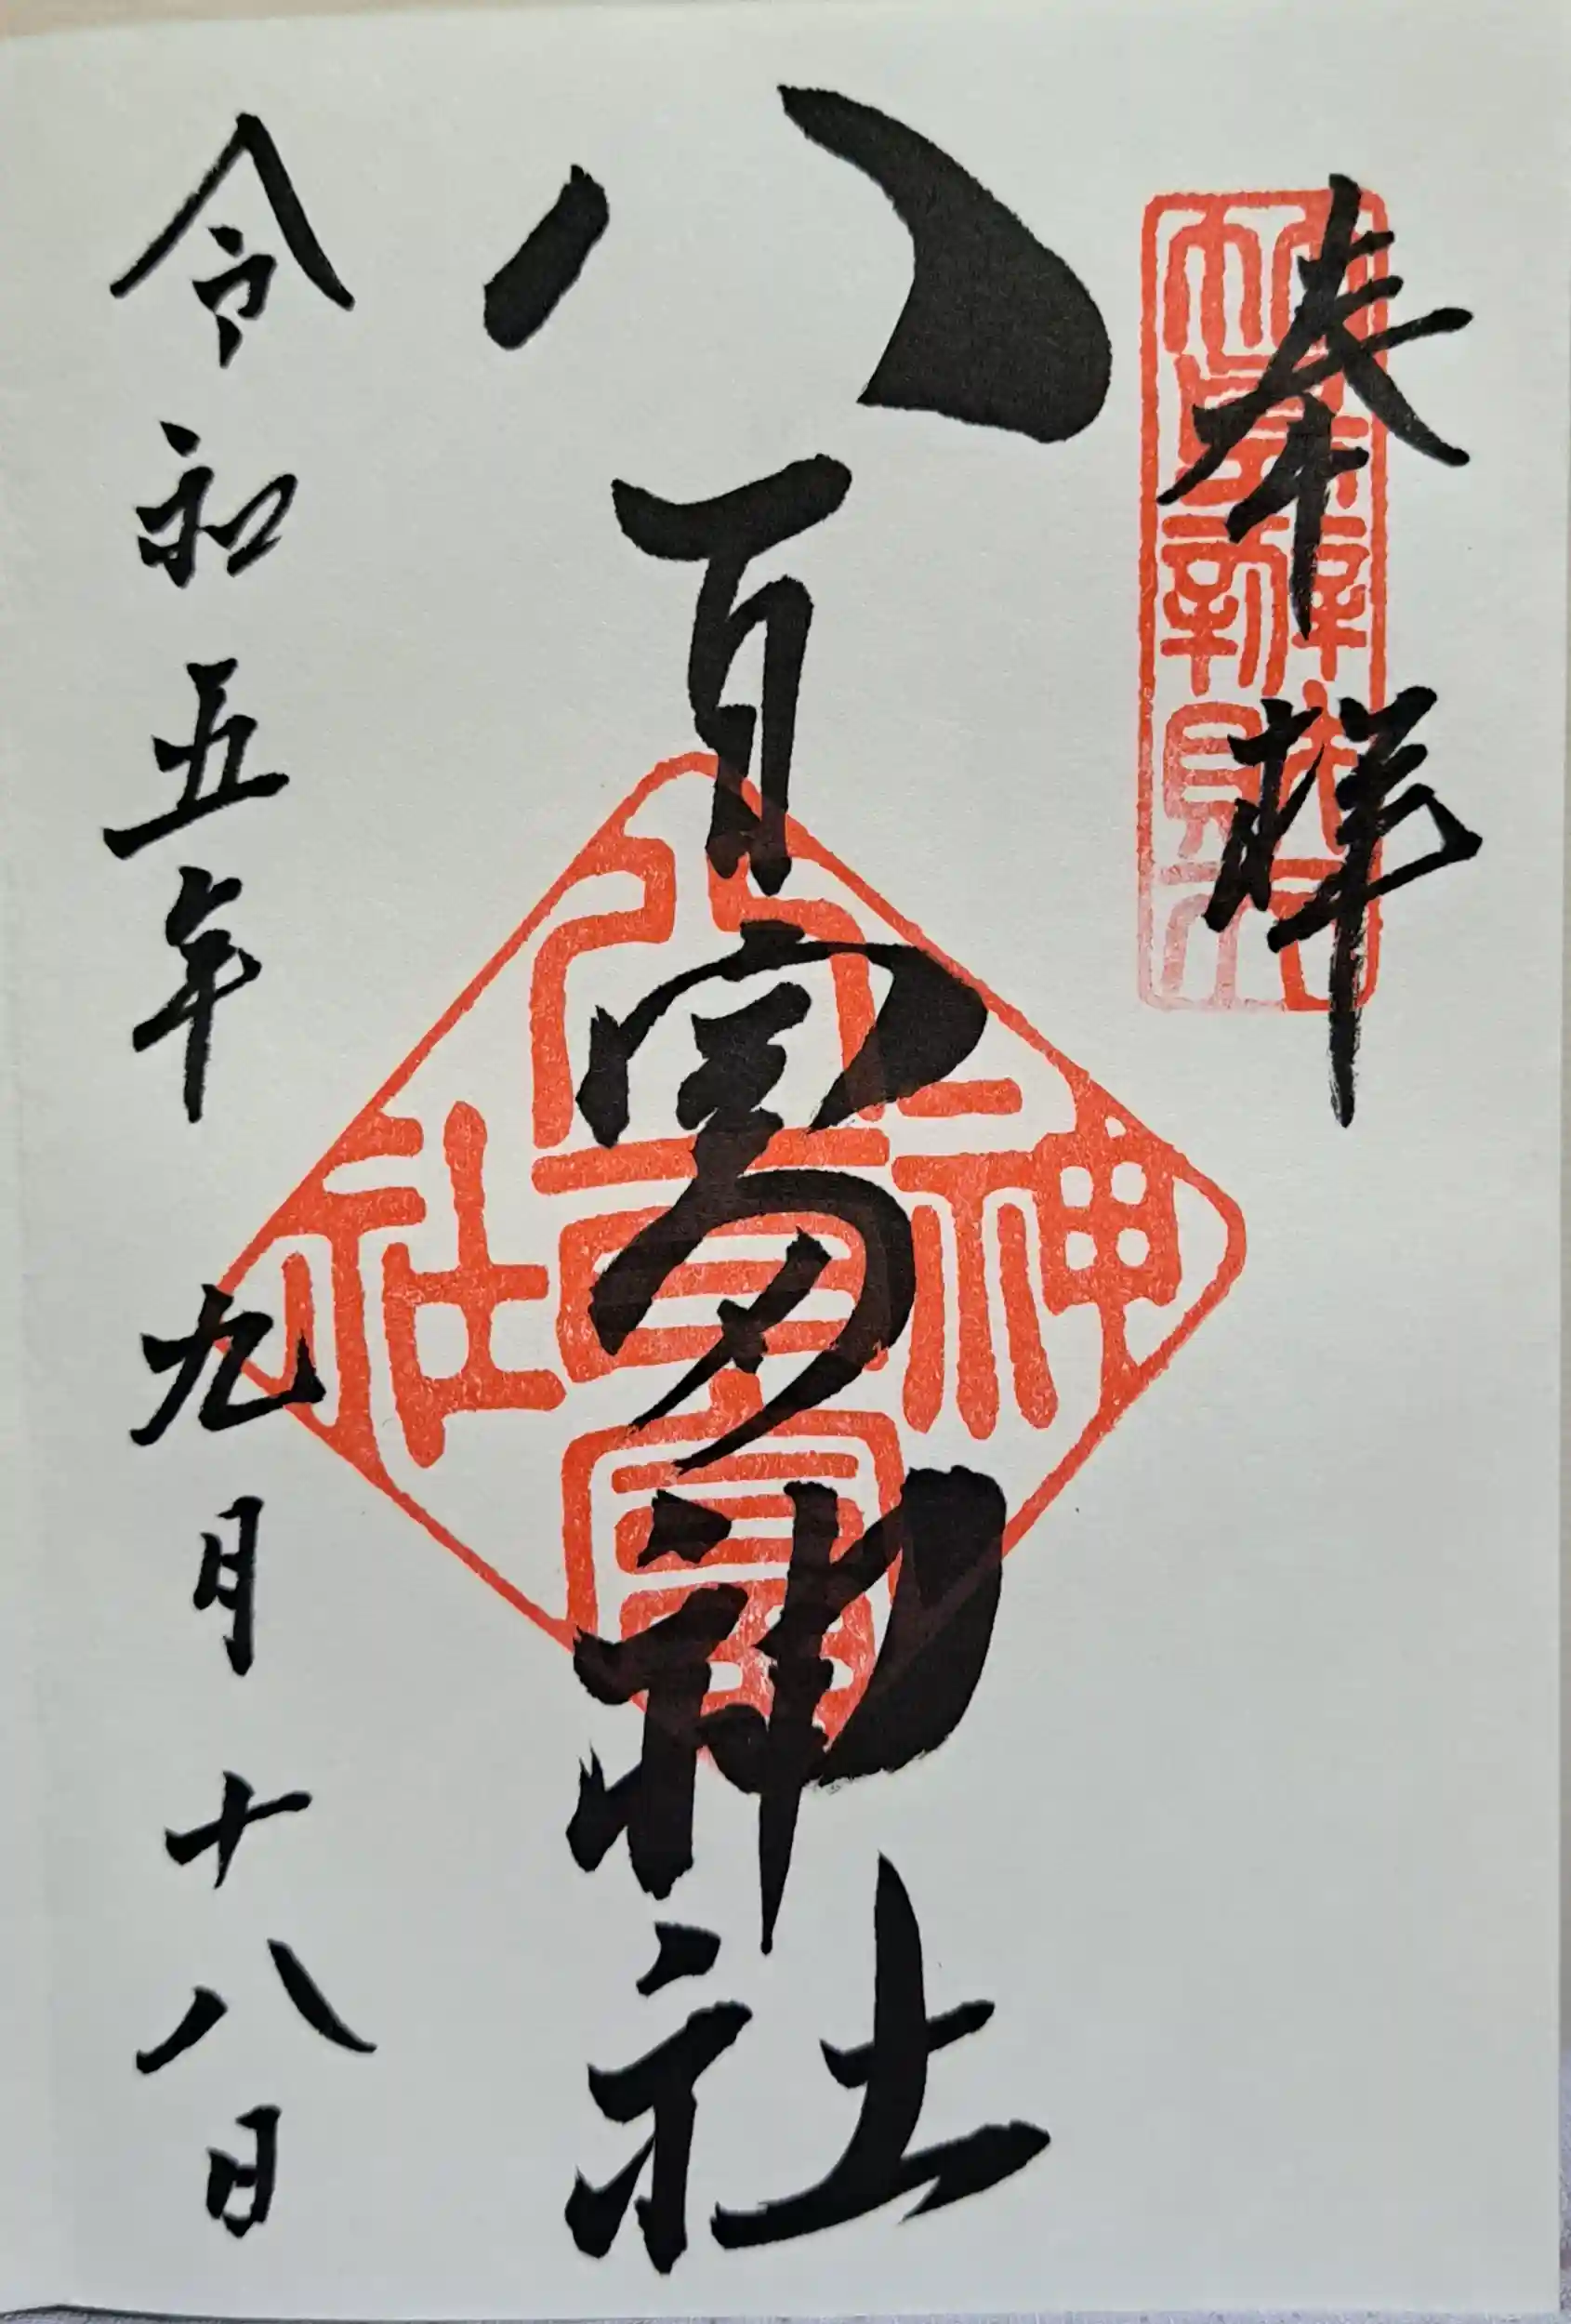 奉拝
竹島辨財天
八百富神社
八百富神社
令和五年九月十八日